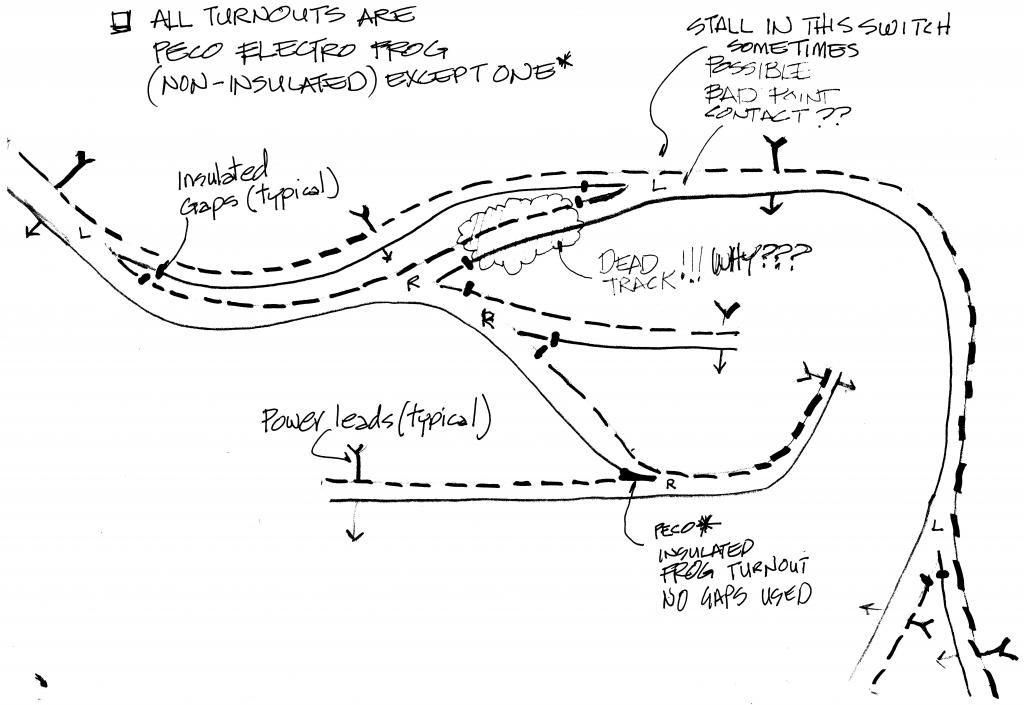 ALL TURNOUTS ARE
PECO ELECTRO FROG
(NON-INSULATED) EXCEPT ONE*
STALL IN THIS SWITCH
SOMETIMES
POSSIBLE
BAD POINT
CONTACT ??
Insulated
Gaps (typical)
L
L
DEAD
TRACK!!! WHY????
R
R
Power leads (typical)
R
PECO*
INSULATED
FROG TURNOUT
NO GAPS USED
L